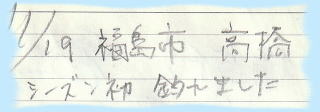 1/19 福島市 高橋
シーズン初 釣れました